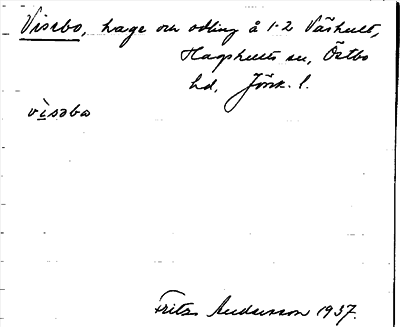 Vissbo, hage och odling å 1-2 Våshult,
Hagshults sn, Östbo
hd, Jönk. l.
vìssbo
Fritz Andersson 1937.